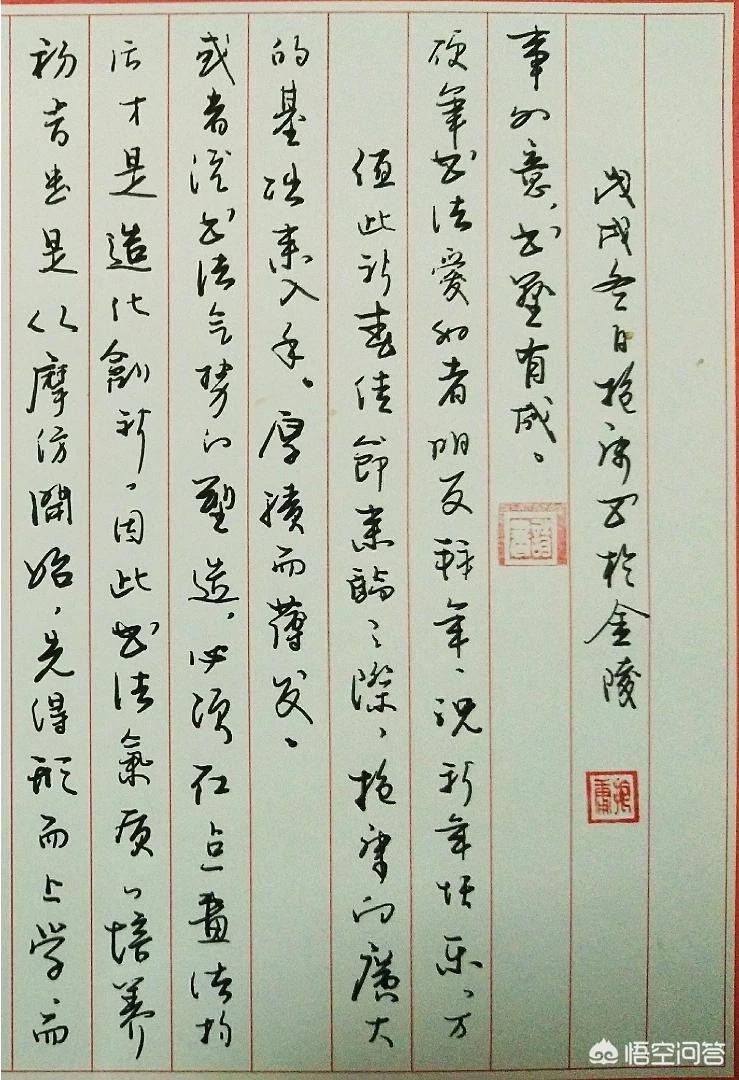 初者也是以摩仿開始，先得形而上学，而
后才是造化創新，因此书法氣质的培养
或者说书法气势的塑造，必须在点畫结构
的基础来入手。厚積而薄发。
值此新春佳節来臨之際，抱庸向廣大
硬笔书法爱好者朋友拜年，祝新年快乐，万
事如意，书艺有成。
戊戌冬日抱庸书於金陵
抱庸
悟空问答